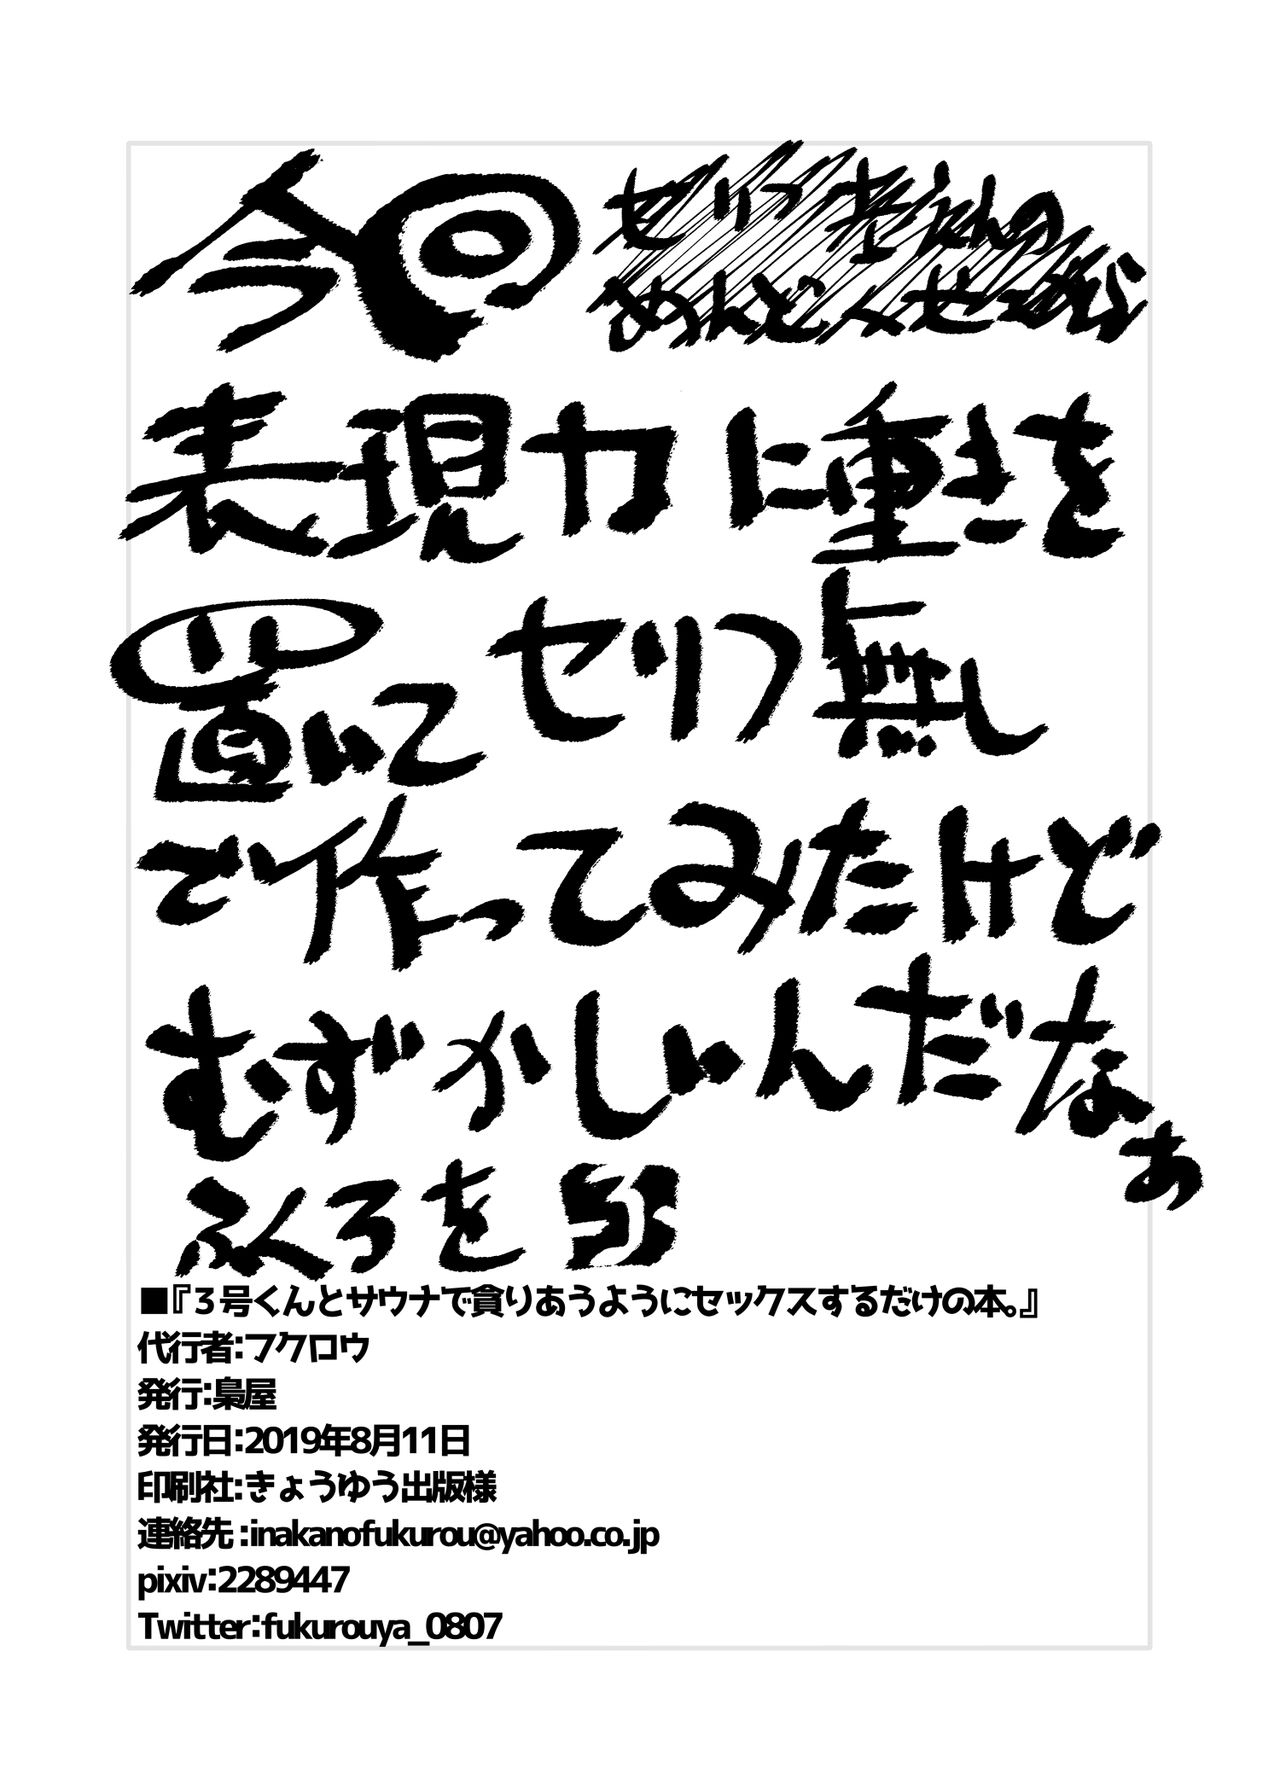 今回 セリフ考えんの
めんどくせーから
表現力に重きを
置いてセリフ無し
で作ってみたけど
むずかしいんだなぁ
ふくろを
■『３号くんとサウナで貪りあうようにセックスするだけの本。』
代行者:フクロウ
発行:梟屋
発行日:2019年8月11日
印刷社:きょうゆう出版様
連絡先:inakanofukurou@yahoo.co.jp
pixiv:2289447
Twitter:fukurouya_0807